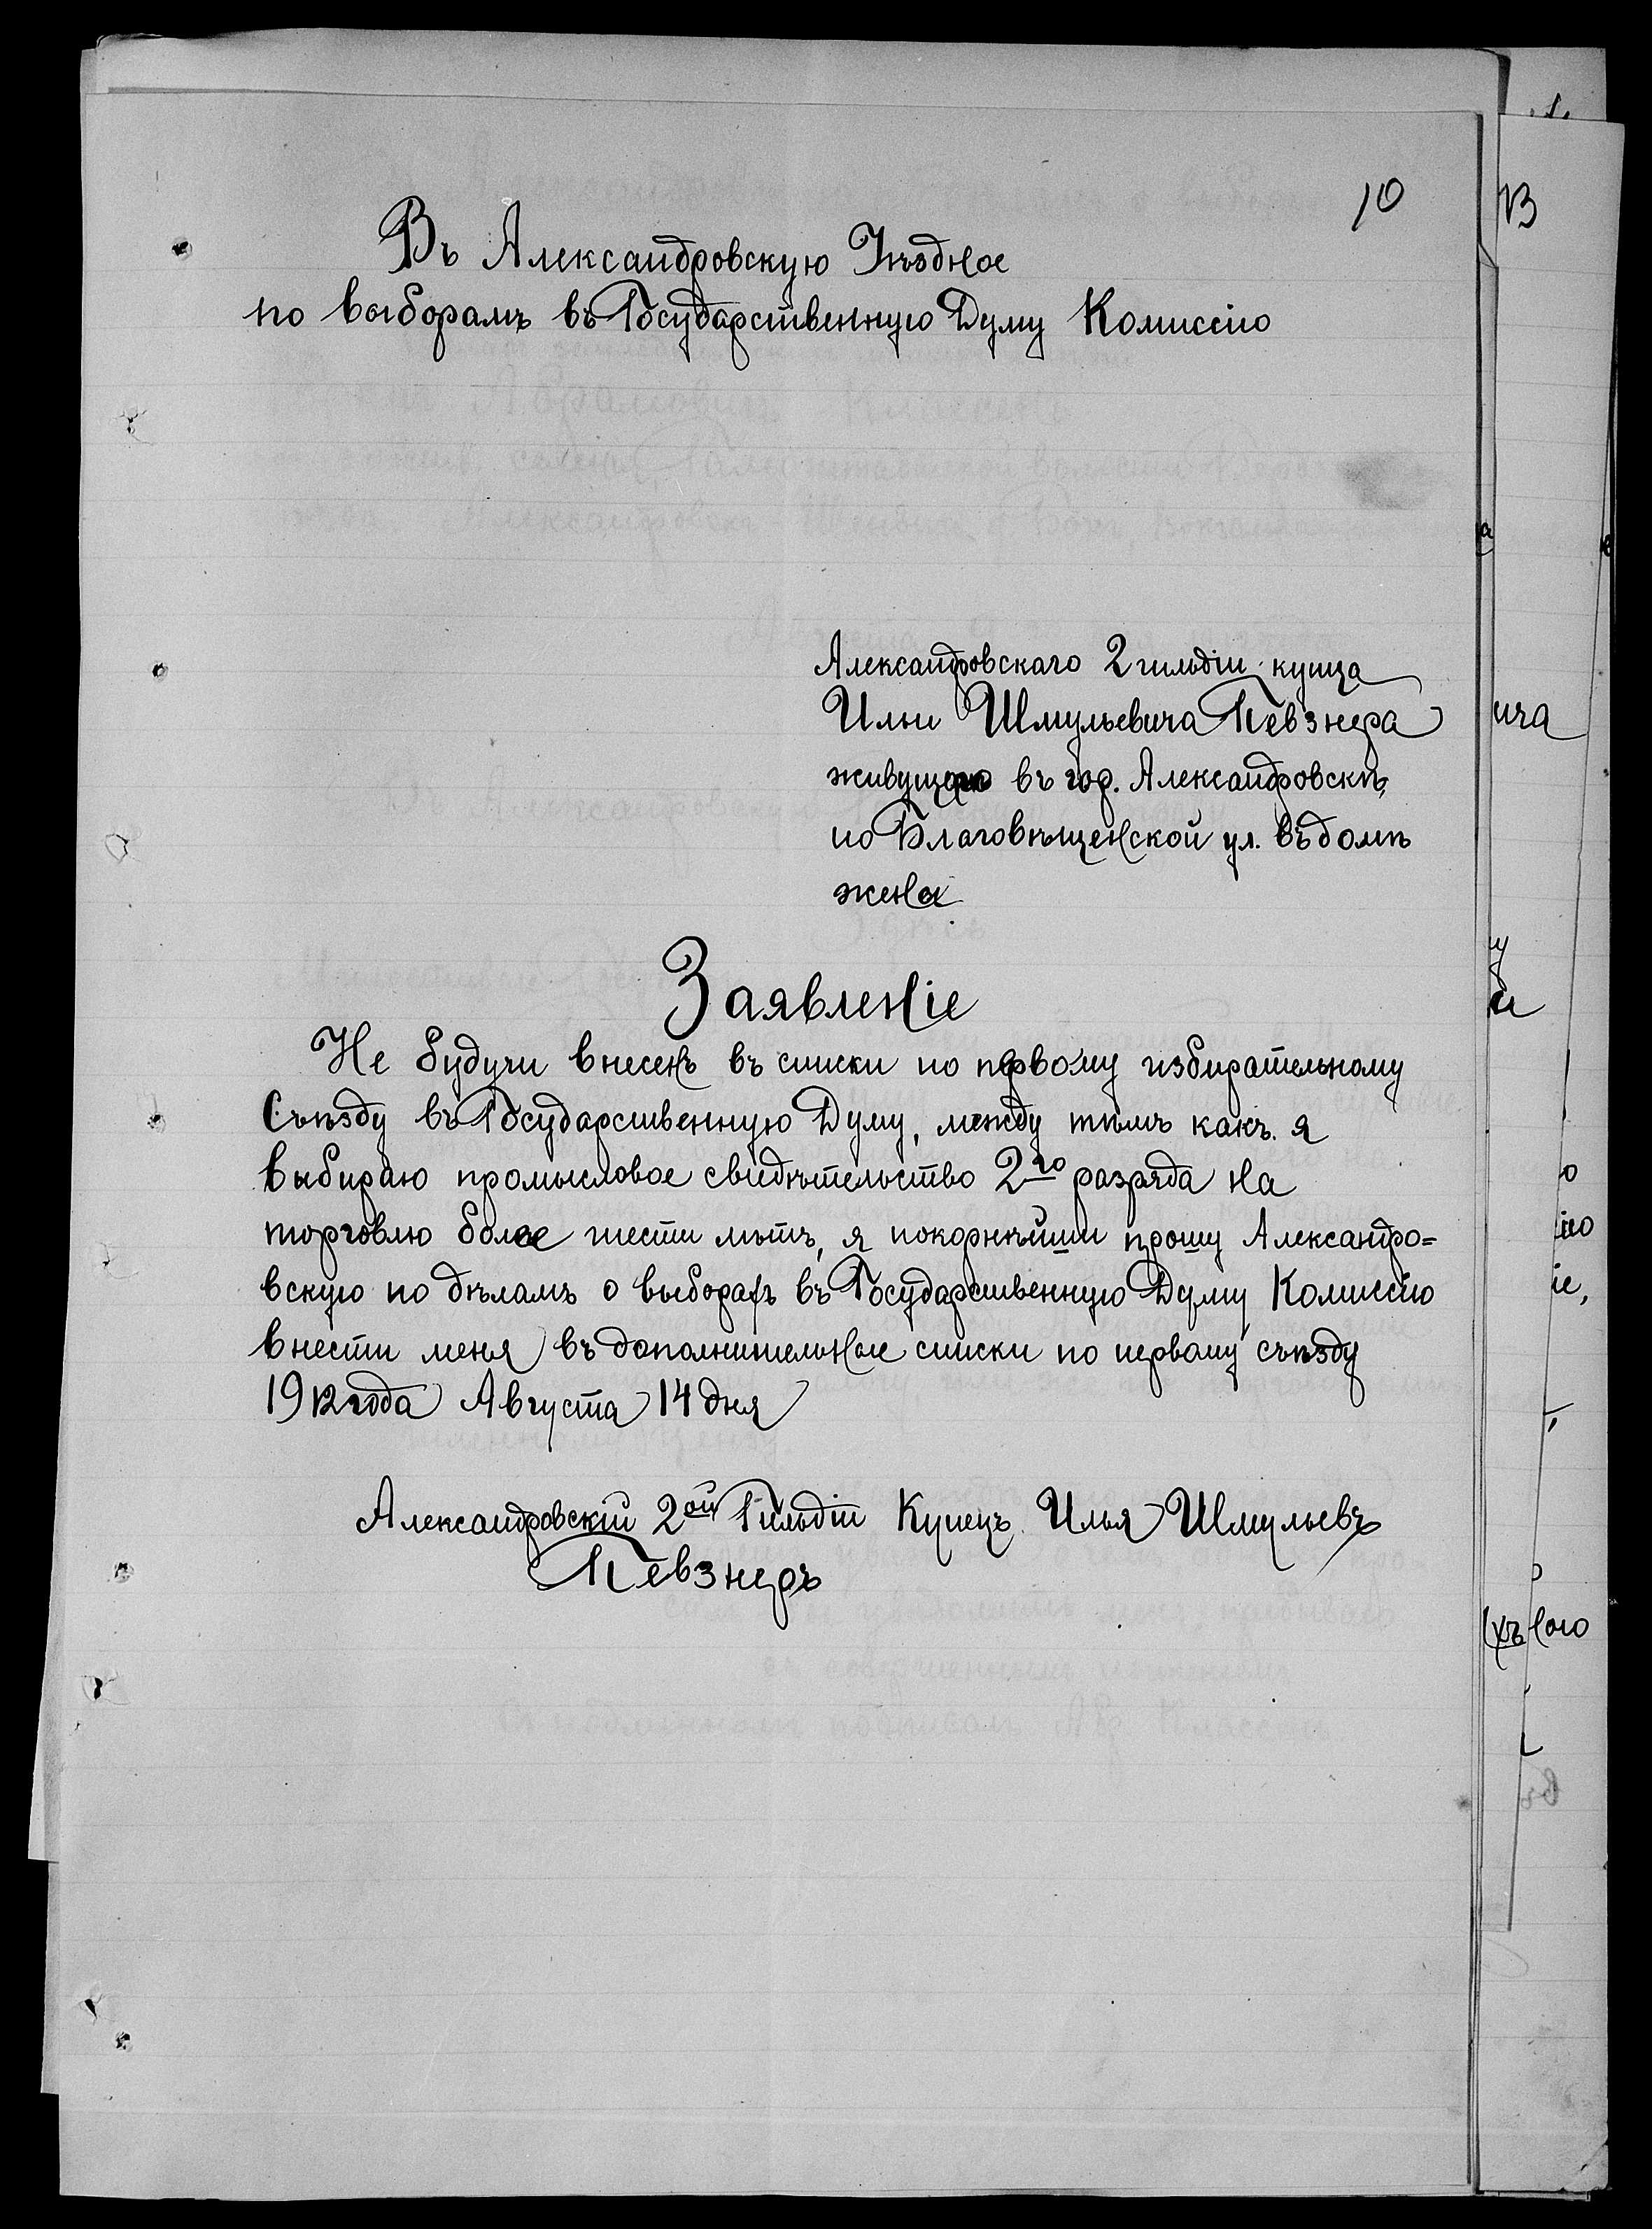 10
Въ Александровскую Уѣздное
по выборамъ въ Государственную Думу Комиссію
Александровскаго 2 гильдіи купца
Ильи Шмульевича Певзнера
живущаго въ гор. Александровскѣ,
по Благовѣщенской ул. въ домѣ
жена
Заявленіе
Не будучи внесенъ въ списки по первому избирательному
Съѣзду въ Государственную Думу, между тѣмъ какъ я
выбираю промысловое свидѣтельство 2го разряда на
торговлю более шести лѣтъ, я покорнѣйши прошу Александро=
вскую по дѣламъ о выборахъ въ Государственную Думу Комиссію
внести меня въ дополнительные списки по первому съѣзду
1912 года Августа 14 дня
Александровскій 2ой Гильдіи Купецъ Илья Шмульевъ
Певзнеръ